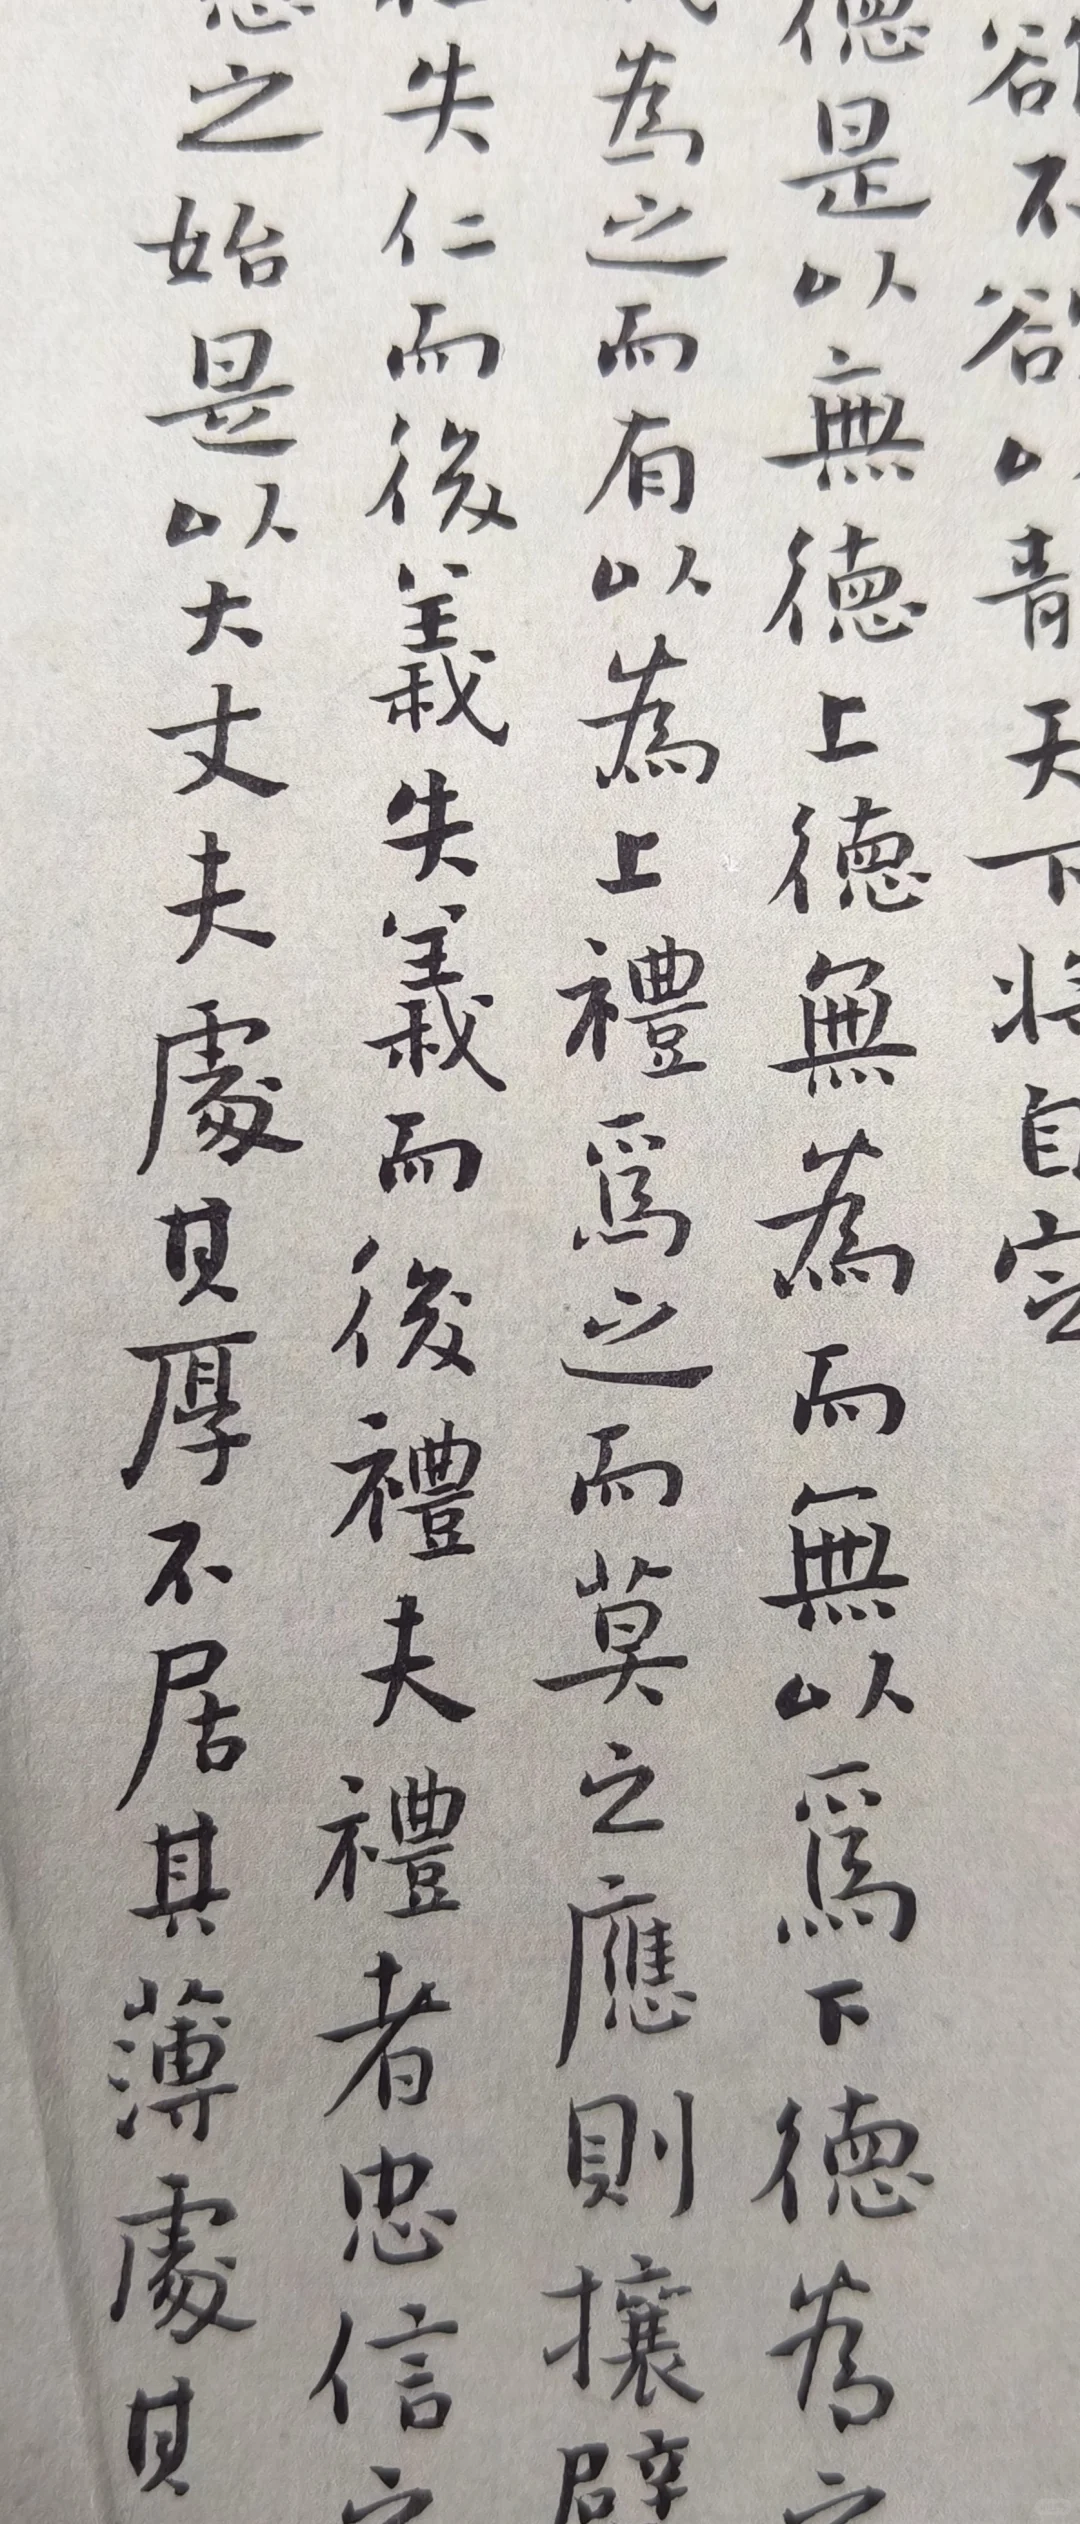 欲不欲以青天下將自定
德是以無德上德無為而無以爲下德為之
為之而有以為上禮爲之而莫之應則攘臂
失仁而後義失義而後禮夫禮者忠信之
之始是以大丈夫處其厚不居其薄處其